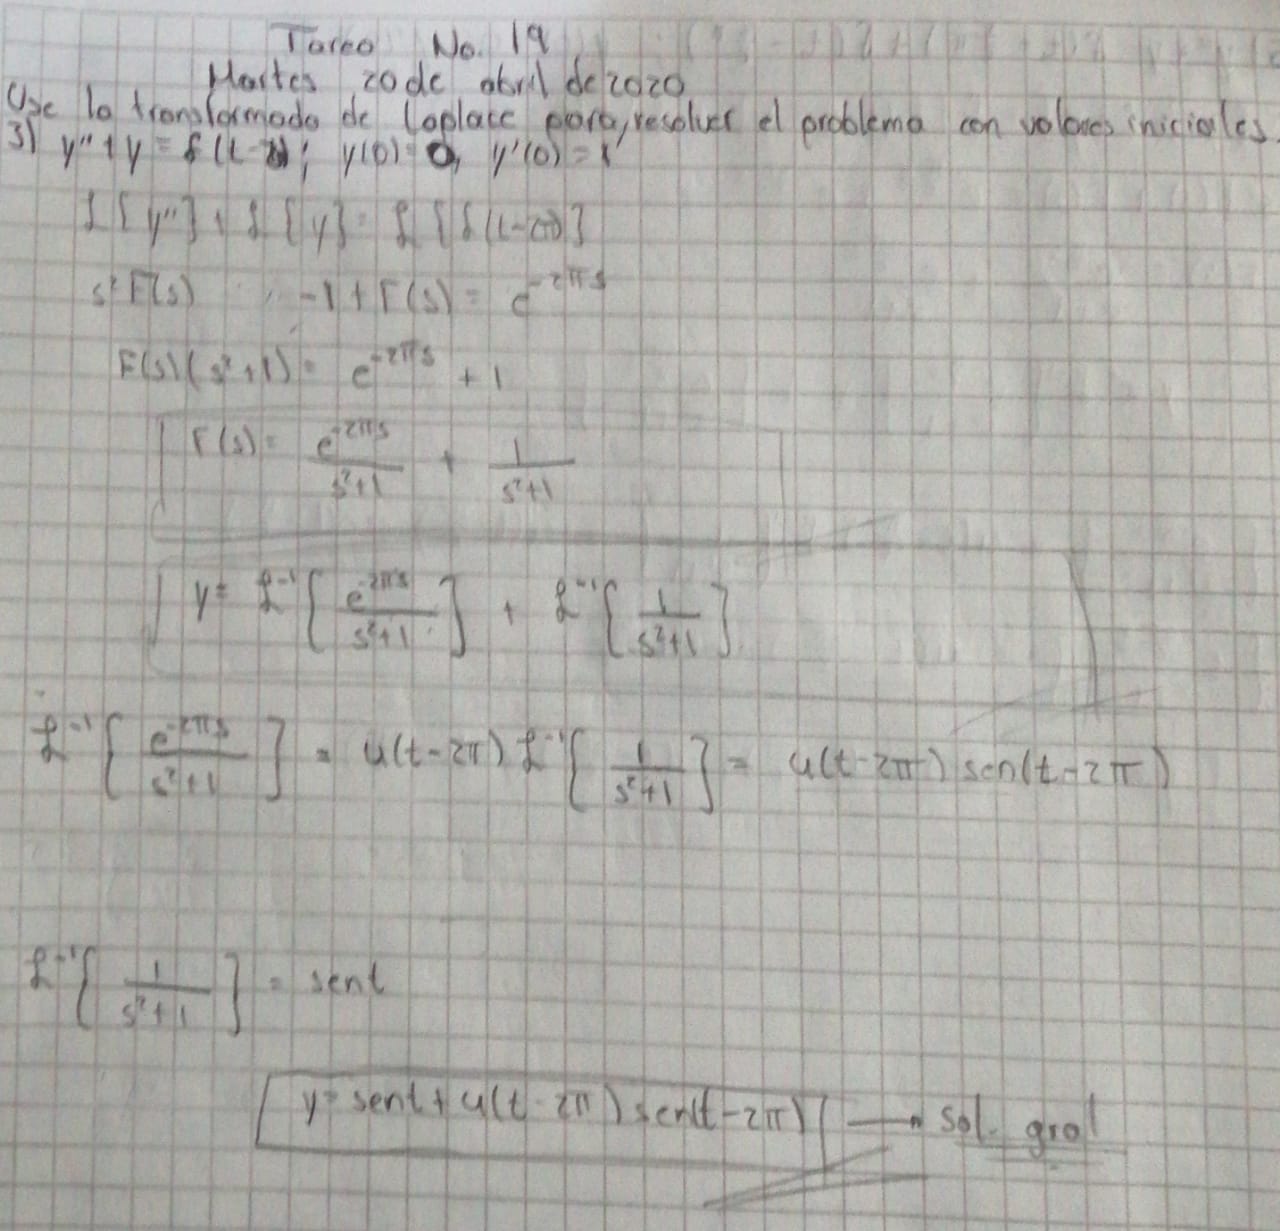 Tarea No. 19
Martes 20 de abril de 2020
Use la transformada de Laplace para resolver el problema con valores iniciales.
3) y'' + y = δ(t - 2π); y(0) = 0, y'(0) = 1
£[y''] + £[y] = £[δ(t-2π)]
s²F(s) -1 + F(s) = e^-2πs
F(s)(s²+1) = e^-2πs + 1
F(s) = e^-2πs/s²+1 + 1/s²+1
y = £^-1[e^-2πs/s²+1] + £^-1[1/s²+1]
£^-1[e^-2πs/s²+1] = u(t-2π) £^-1[1/s²+1] = u(t-2π) sen(t-2π)
£^-1[1/s²+1] = sent
y = sent + u(t-2π) sen(t-2π) → sol. gral